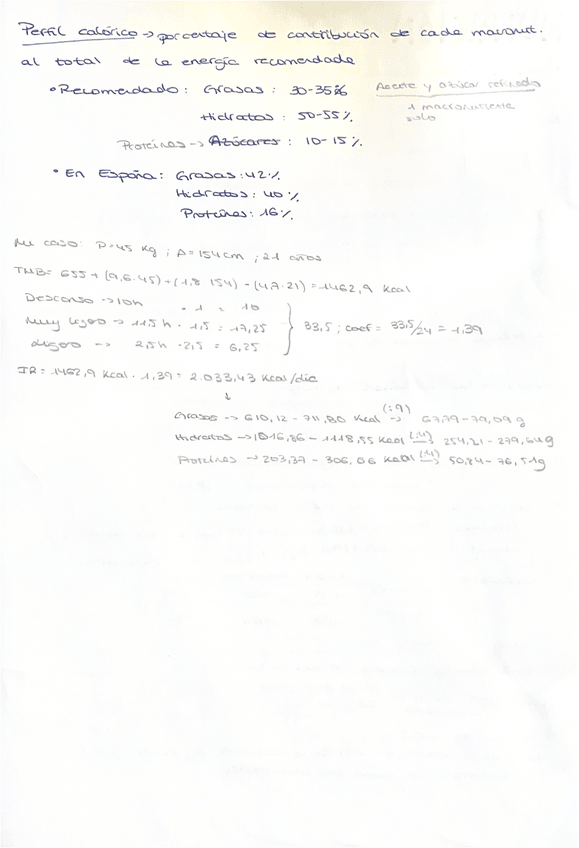 Perfil calórico → porcentaje de contribución de cada macronut.
al total de la energía recomendada
• Recomendado: Grasas: 30-35%
Aceite y azúcar refinado
1 macronutriente
solo
Hidratos: 50-55%
Proteínas → Azúcares: 10-15%
• En España: Grasas: 42%
Hidratos: 40%
Proteínas: 16%
Mi caso: P=45 Kg; A=154cm; 21 años
TMB= 655 + (9,6·45) + (1,8·154) - (4,7·21) = 1462,9 Kcal
Descanso → 10h · 1 = 10
Muy ligero → 11,5h · 1,5 = 17,25
Ligero → 2,5h · 2,5 = 6,25
33,5; coef = 33,5/24 = 1,39
IR = 1462,9 Kcal · 1,39 = 2.033,43 Kcal/día
↓
Grasas → 610,12 - 711,80 Kcal (:9)→ 67,79-79,09 g
Hidratos → 1016,86 - 1118,55 Kcal (:4)→ 254,21-279,64g
Proteínas → 203,37 - 306,06 Kcal (:4)→ 50,84-76,51g